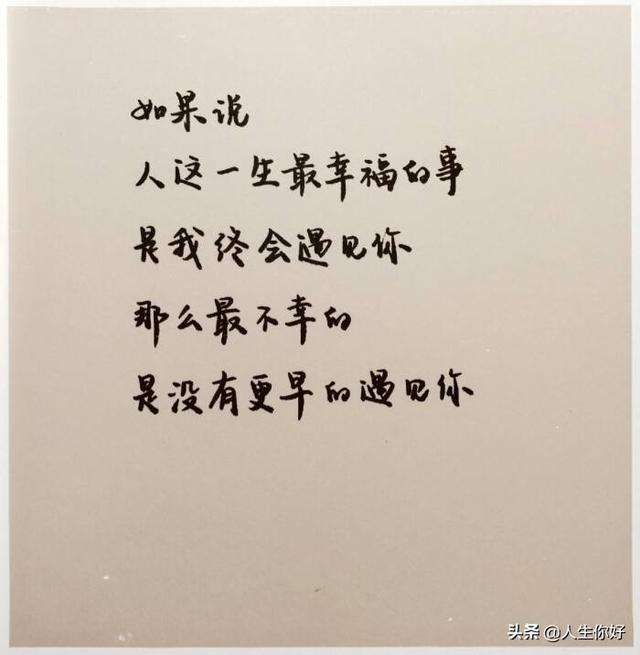 如果说
人这一生最幸福的事
是我终会遇见你
那么最不幸的
是没有更早的遇见你
头条 @人生你好